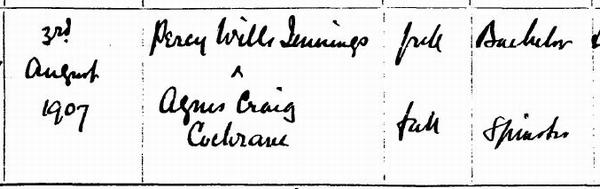 3rd August 1907
Percy Wills Jennings
full
Bachelor
^
Agnes Craig Cochrane
full
Spinster